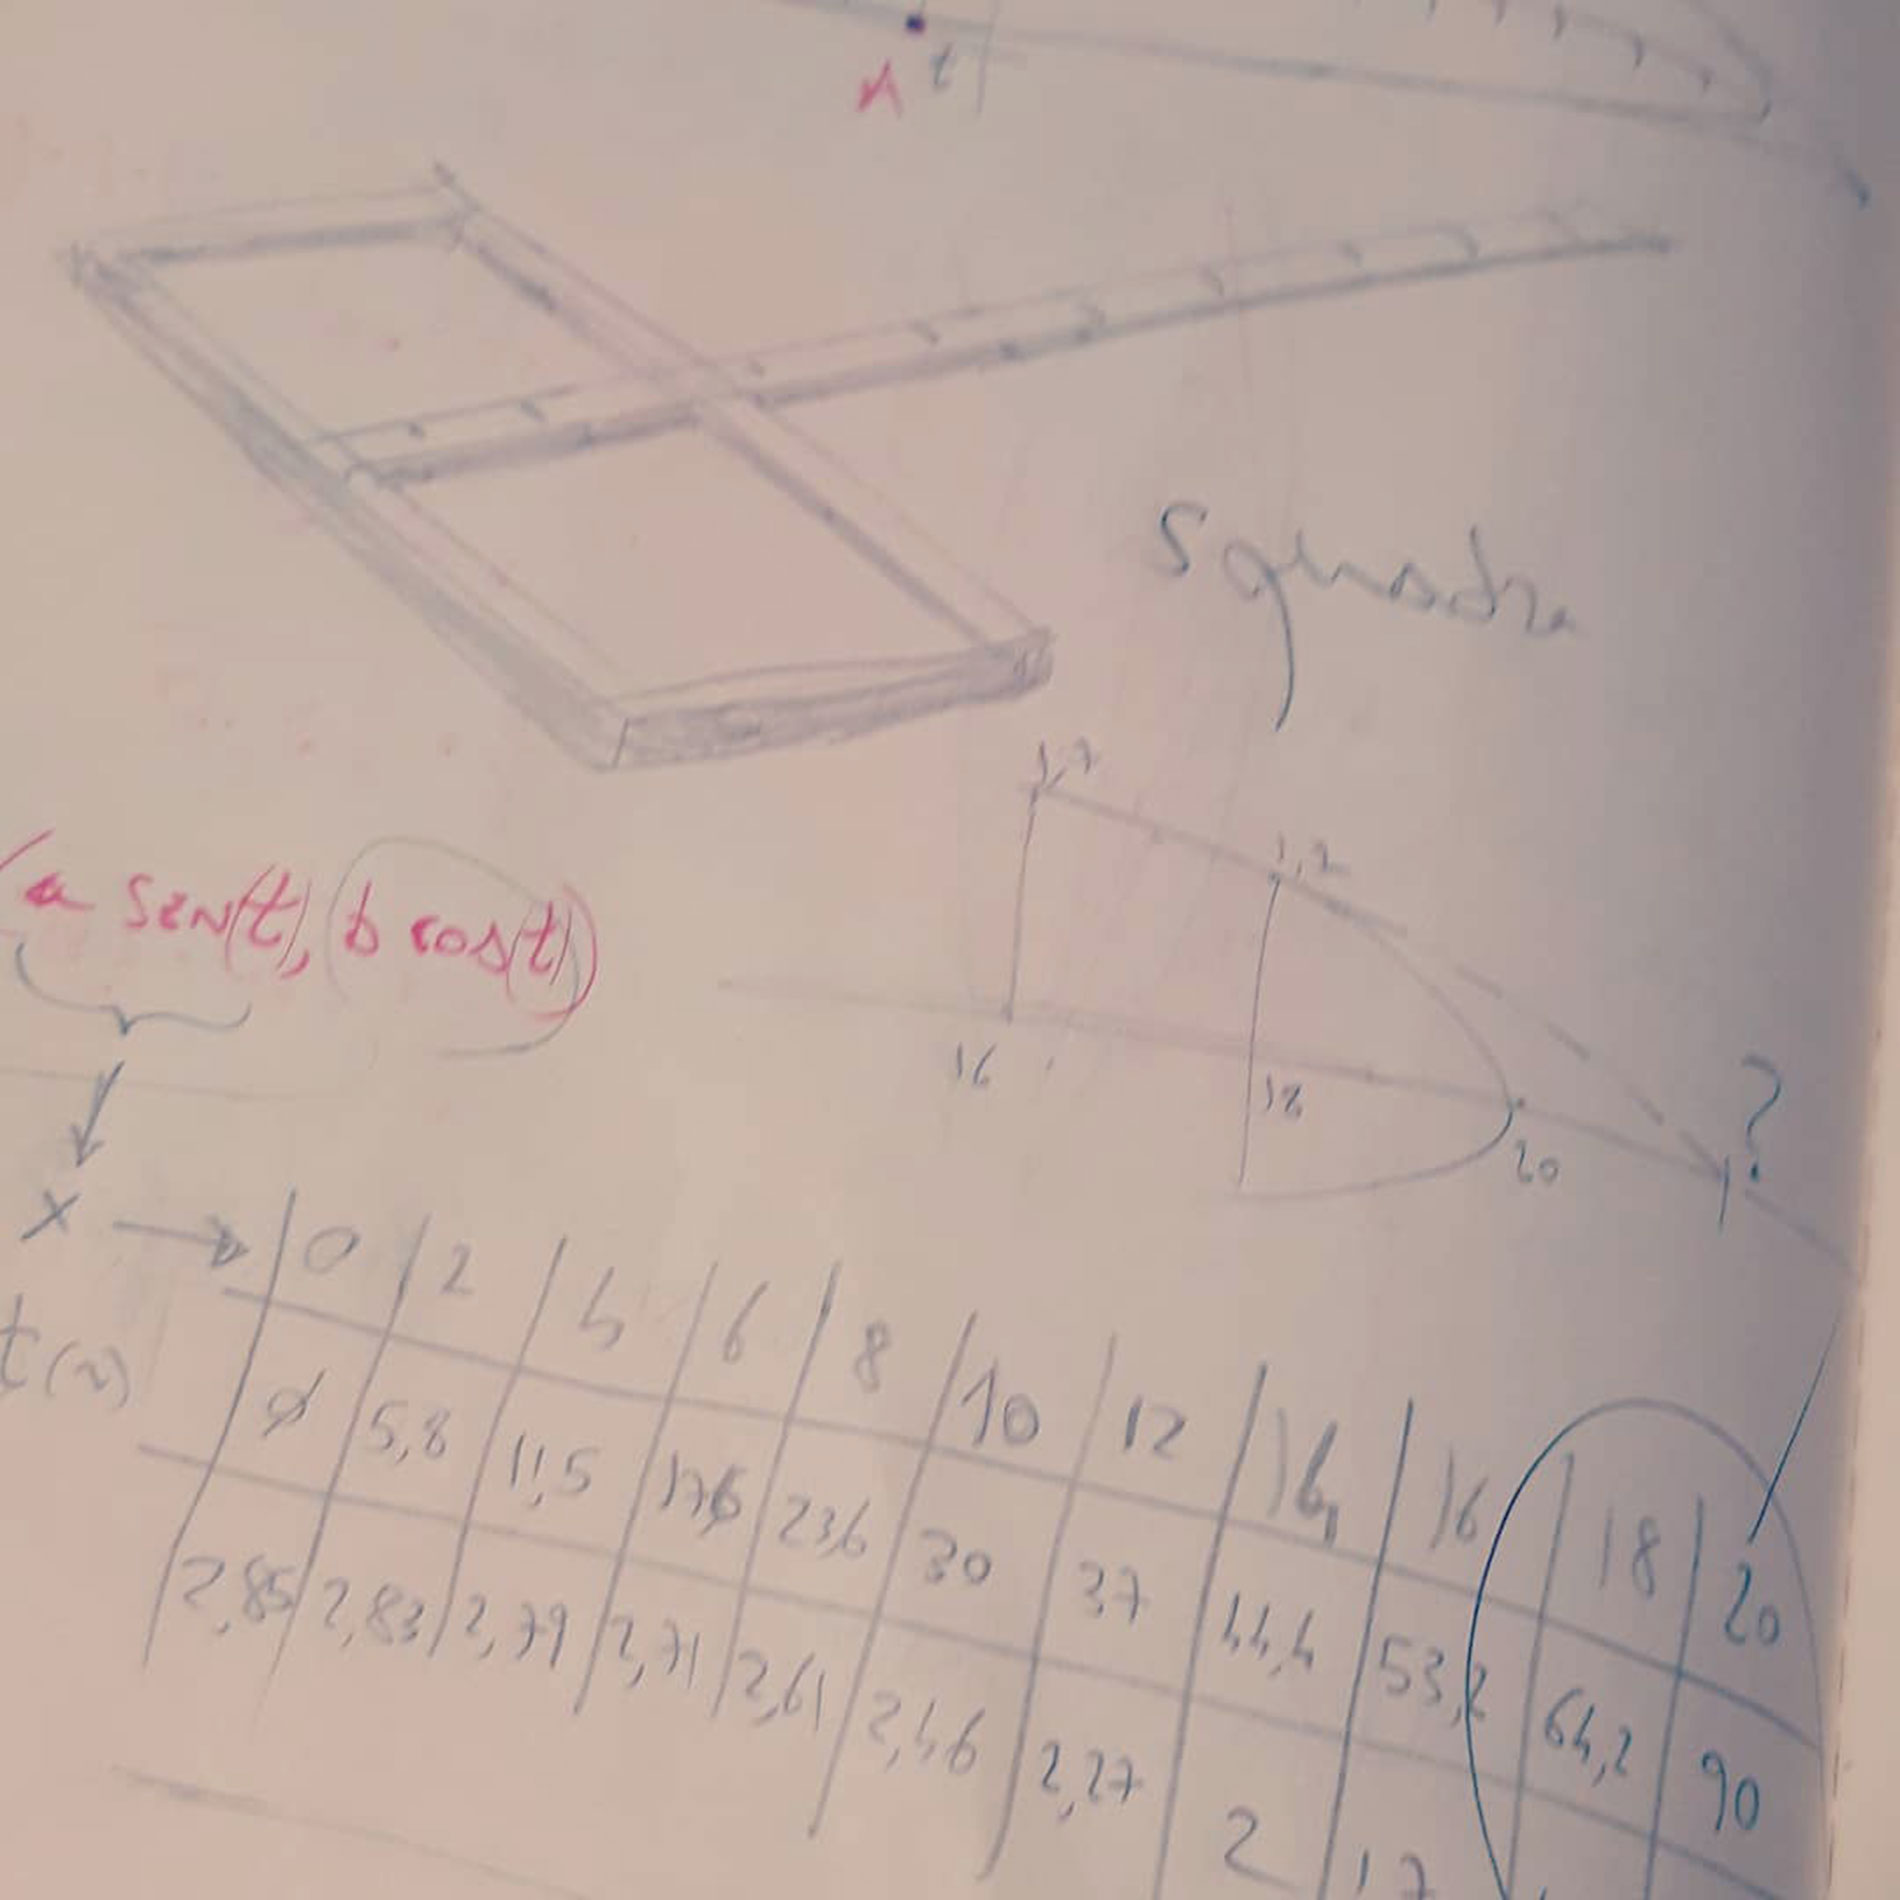 A t
squadra
1,7
1,2
(a sen(t), b cos(t))
16 18 20 ?
x → 0 2 4 6 8 10 12 14 16 18 20
t(°) ø 5,8 11,5 17,6 23,6 30 37 44,4 53,2 64,2 90
2,85 2,83 2,79 2,71 2,61 2,46 2,27 2 1,7